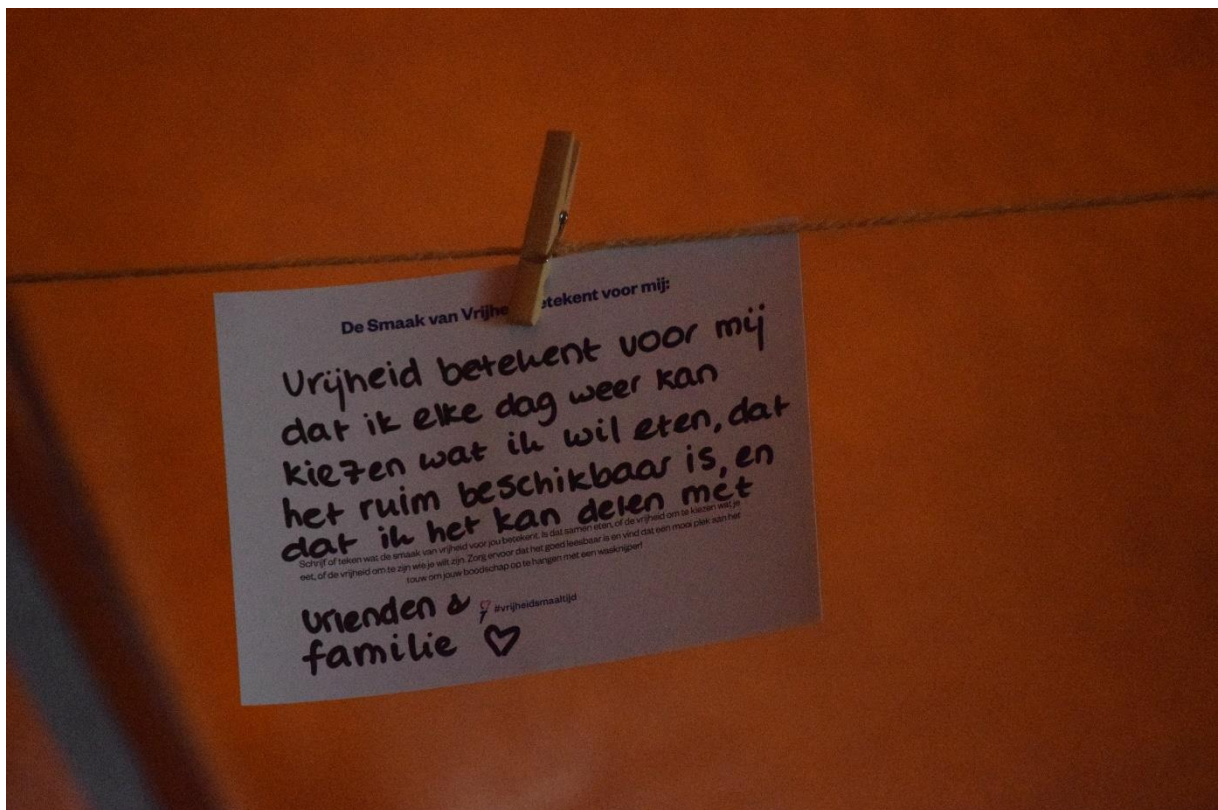 De Smaak van Vrijhe etekent voor mij:
Vrijheid betekent voor mij
dat ik elke dag weer kan
kiezen wat ik wil eten, dat
het ruim beschikbaar is, en
dat ik het kan delen met
Schrijf of teken wat de smaak van vrijheid voor jou betekent. Is dat samen eten, of de vrijheid om te kiezen wat je
eet, of de vrijheid om te zijn wie je wilt zijn. Zorg ervoor dat het goed leesbaar is en vind dat één mooi plek aan het
touw om jouw boodschap op te hangen met een wasknijper!
vrienden & #vrijheidsmaaltijd
familie ♡